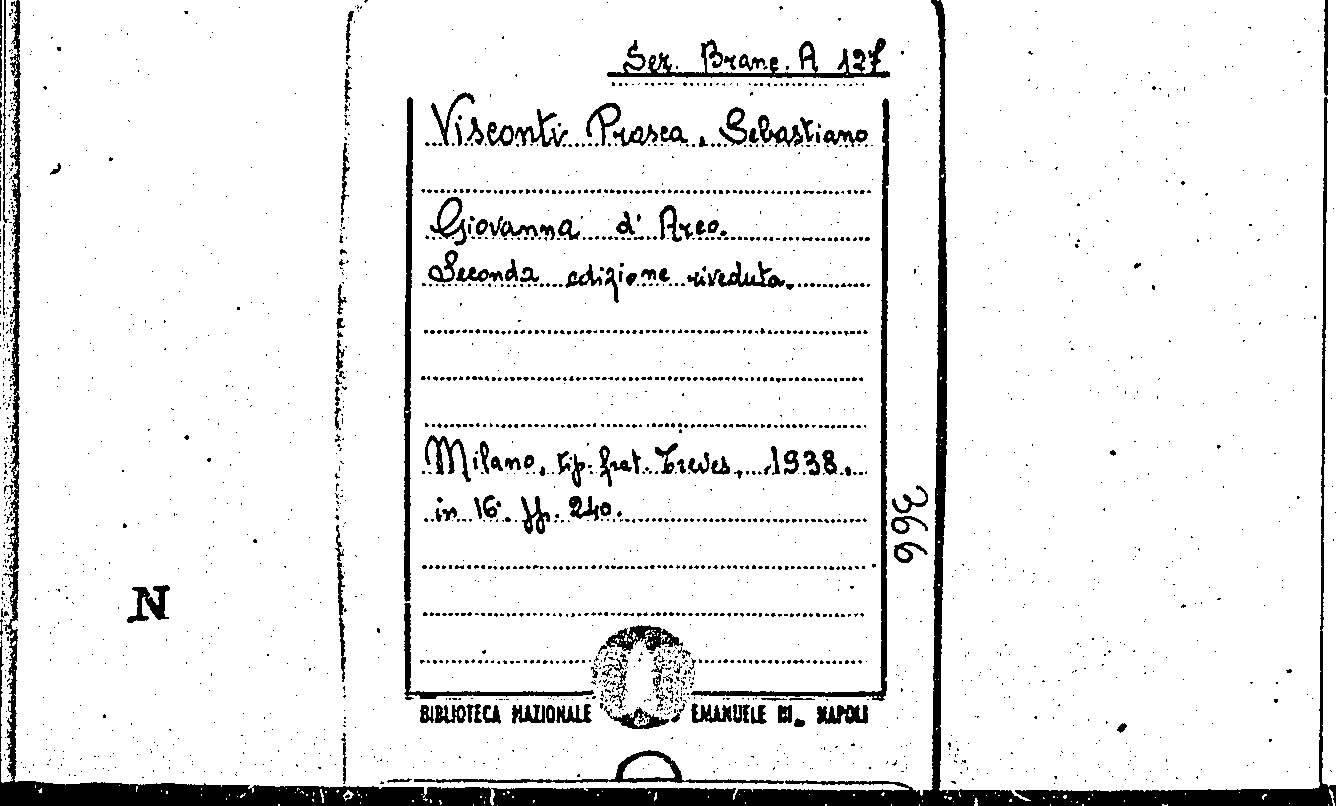 Ser. Branc. A 127
Visconti Prasca, Sebastiano
Giovanna d'Arco.
Seconda edizione riveduta.
Milano, tip. frat. Treves, 1938.
in 16° pp. 240.
366
N
BIBLIOTECA NAZIONALE EMANUELE III_ NAPOLI